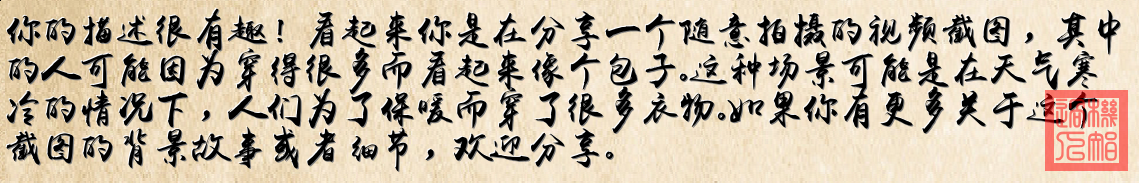 你的描述很有趣！看起来你是在分享一个随意拍摄的视频截图，其中
的人可能因为穿得很多而看起来像个包子。这种场景可能是在天气寒
冷的情况下，人们为了保暖而穿了很多衣物。如果你有更多关于这个
截图的背景故事或者细节，欢迎分享。